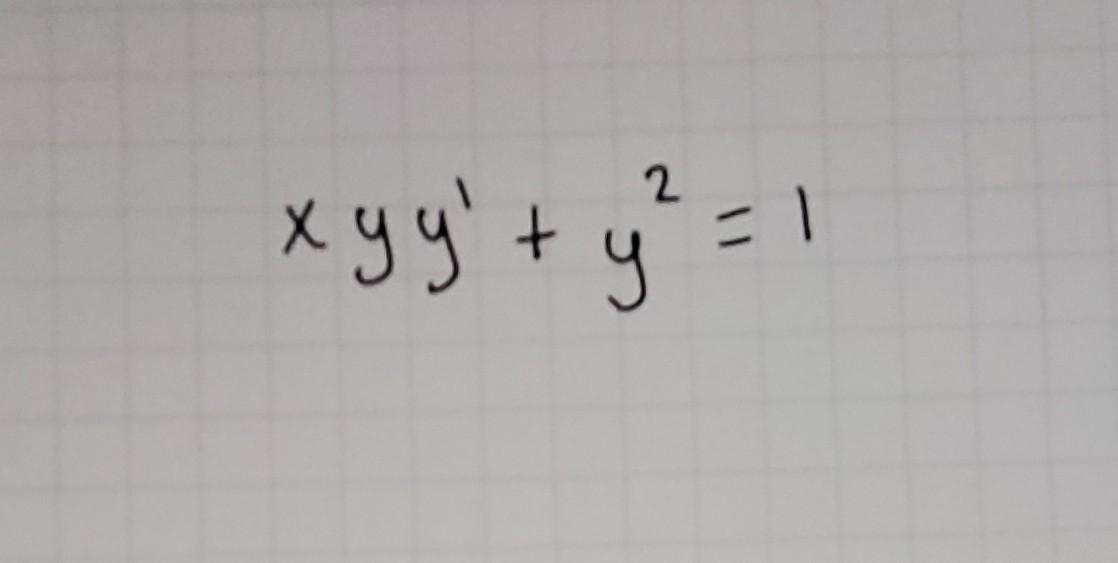 xyy' + y² = 1